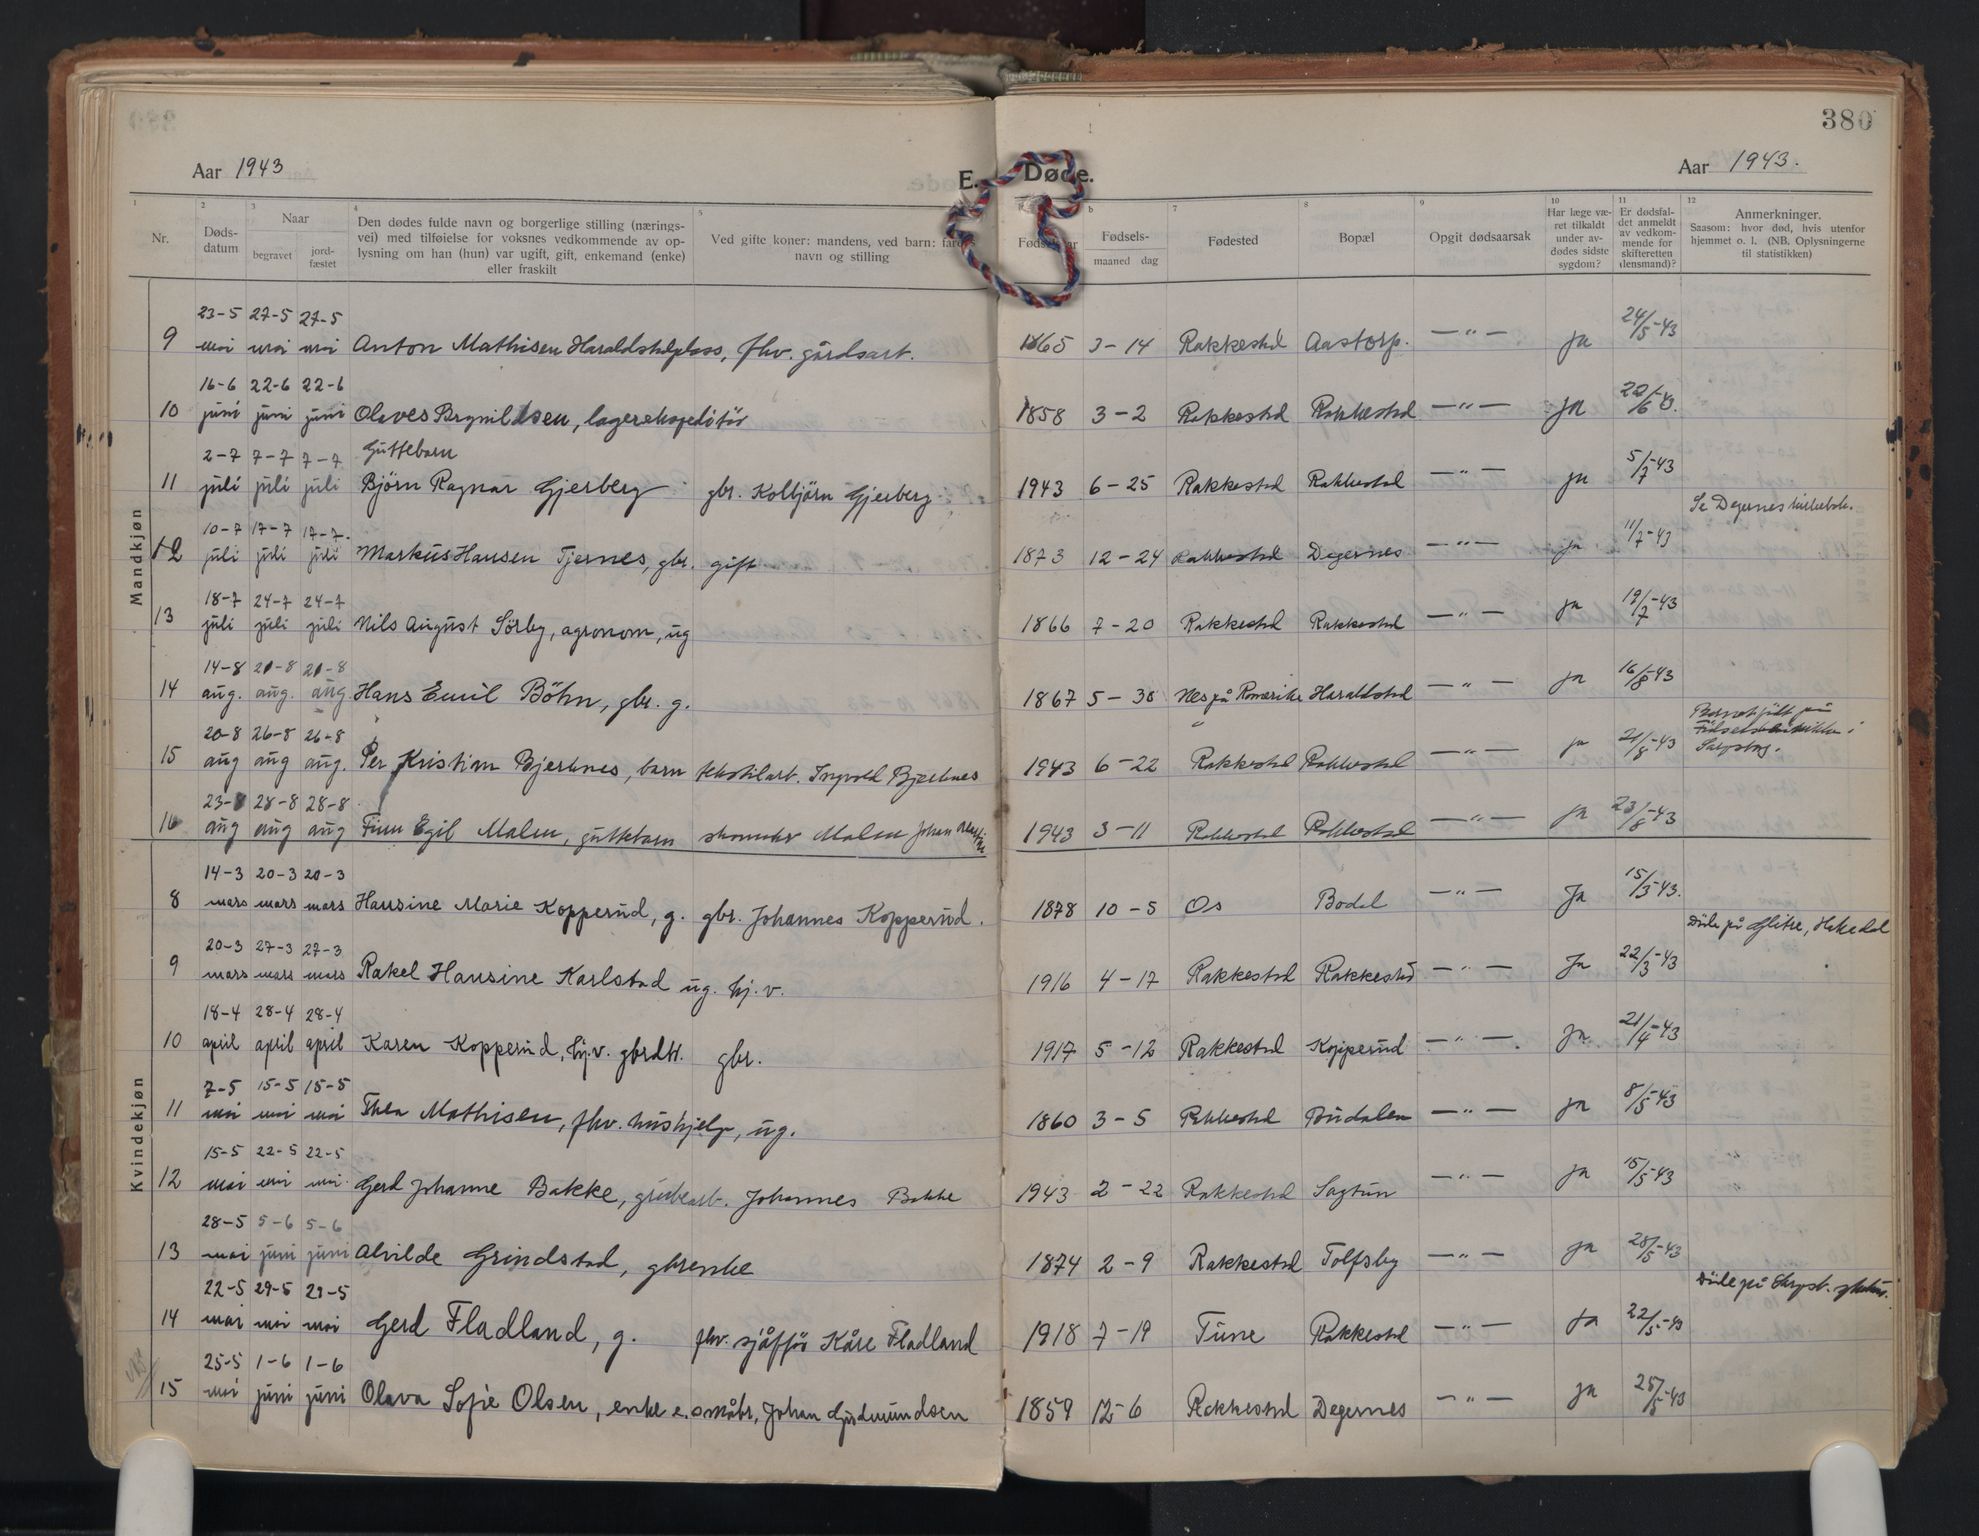 380
Aar 1943
E. Døde.
Aar 1943.
1 2 3 4 5 6 7 8 9 10 11 12
Nr.
Døds-
datum
Naar
begravet
jord-
fæstet
Den dødes fulde navn og borgerlige stilling (nærings-
vei) med tilføielse for voksnes vedkommende av op-
lysning om han (hun) var ugift, gift, enkemand (enke)
eller fraskilt
Ved gifte koner: mandens, ved barn: farens
navn og stilling
Fødselsaar
Fødsels-
maaned dag
Fødested
Bopæl
Opgit dødsaarsak
Har læge væ-
ret tilkaldt
under av-
dødes sidste
sygdom?
Er dødsfal-
det anmeldt
av vedkom-
mende for
skifteretten
(lensmand)?
Anmerkninger.
Saasom: hvor død, hvis utenfor
hjemmet o. l. (NB. Oplysningerne
til statistikken)
Mandkjøn
23-5 27-5 27-5 24/5-43
9 mai mai mai Anton Mathisen Haraldstadplass, fhv. gårdsarb. 1865 3-14 Rakkestad Aastorp. —"— Ja
16-6 22-6 22-6 22/6 43.
10 juni juni juni Olaves Brynildsen, lagerekspeditør 1858 3-2 Rakkestad Rakkestad —"— Ja
2-7 7-7 7-7 Guttebarn 5/7-43
11 juli juli juli Bjørn Ragnar Gjerberg gbr. Kolbjørn Gjerberg 1943 6-25 Rakkestad Rakkestad —"— Ja
10-7 17-7 17-7. 11/7-43 Se Degernes kirkebok.
12 juli juli juli Markus Hansen Tjernes, gbr. gift 1873 12-24 Rakkestad Degernes —"— Ja
18-7 24-7 24-7 19/7-43
13 juli juli juli Nils August Sørby, agronom, ug 1866 7-20 Rakkestad Rakkestad —"— Ja
14-8 21-8 21-8 16/8-43
14 aug. aug. aug Hans Emil Bøhn, gbr. g. 1867 5-30 Nes på Romerike Haraldstad —"— Ja
20-8 26-8 26-8 21/8-43 i Sarpsborg.
15 aug aug aug. Per Kristian Bjerknes, barn tekstilarb. Ingvald Bjerknes 1943 6-22 Rakkestad Rakkestad —"— Ja
23-8 28-8 28-8 23/8-43
16 aug aug aug Finn Egil Malen, guttebarn skomaker Malen Johan 1943 3-11 Rakkestad Rakkestad —"— Ja
Kvindekjøn
14-3 20-3 20-3 15/3-43.
8 mars mars mars Hansine Marie Kopperud, g. gbr. Johannes Kopperud. 1878 10-5 Os Bodal —"— Ja
20-3 27-3 27-3 22/3-43 Døde på Glitre, Hakedal
9 mars mars mars Rakel Hansine Karlstad ug. hj. v. 1916 4-17 Rakkestad Rakkestad —"— Ja
18-4 28-4 28-4 21/4-43
10 april april april Karen Kopperud, hj.v. gbrdtt. gbr. 1917 5-12 Rakkestad Kopperud —"—. Ja
7-5 15-5 15-5 8/5-43
11 mai mai mai Thea Mathisen, fhv. hushjelp, ug. 1860 3-5 Rakkestad Budalen —"— Ja
15-5 22-5 22-5 15/5-43
12 mai mai mai Gerd Johanne Bakke, grubearb. Johannes Bakke 1943 2-22 Rakkestad Sagtun —"— Ja
28-5 5-6 5-6 28/5-43
13 mai juni juni Alvilde Grindstad, gbrenke 1874 2-9 Rakkestad Tolfsby —"— Ja
22-5 29-5 29-5 22/5-43 Døde på
14 mai mai mai Gerd Fladland, g. fhv. sjåffør Kåre Fladland 1918 7-19 Tune Rakkestad —"— Ja
25-5 1-6 1-6 25/5-43
15 mai juni juni Olava Sofie Olsen, enke e. småbr. Johan Gudmundsen 1859 12-6 Rakkestad Degernes —"— Ja